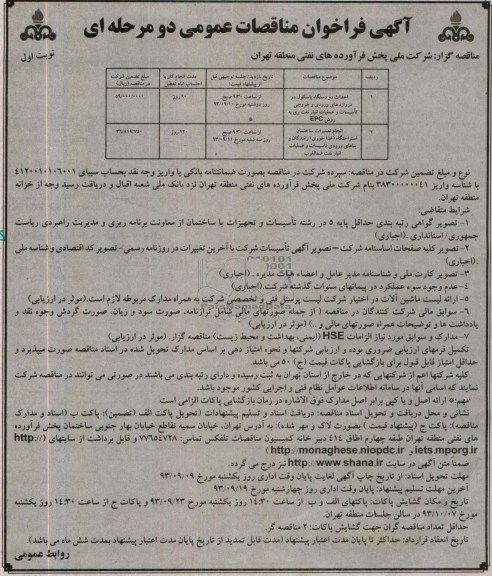 آگهی فراخوان مناقصات عمومی دو مرحله ای
نوبت اول
مناقصه گزار: شرکت ملی پخش فرآورده های نفتی منطقه تهران
ردیف موضوع مناقصات تاریخ بازدید / جلسه توجیهی قبل از پیشنهاد قیمت: مدت انجام کار با احتساب ایام تعطیل مبلغ تضمین شرکت در مناقصه (ریال)
۱ احداث دو دستگاه باسکول در دروازه های ورودی و خروجی تأسیسات و عملیات انبار نفت ری به روش EPC از ساعت ۹:۳۰ صبح روز دوشنبه مورخ ۹۳/۰۹/۱۰ ۹۰ روز
۲ انجام تعمیرات ساختمان از ساعت ۹:۳۰ صبح روز سه شنبه مورخ ۹۳/۰۹/۱۱ ۱۲۰ روز
نوع و مبلغ تضمین شرکت در مناقصه: سپرده شرکت در مناقصه بصورت ضمانتنامه بانکی یا واریز وجه نقد بحساب سیبای ۴۱۲۰۰۱۰۱۰۶۰۰۱
با شناسه واریز ۳۸۳۰۰۰۰۰۰۴۱ بنام شرکت ملی پخش فرآورده های نفتی منطقه تهران نزد بانک ملی شعبه اقبال و دریافت رسید وجه از خزانه
منطقه تهران.
شرایط متقاضی:
۱- تصویر گواهی رتبه بندی حداقل پایه ۵ در رشته تأسیسات و تجهیزات یا ساختمان از معاونت برنامه ریزی و مدیریت راهبردی ریاست
جمهوری / استانداری .(اجباری)
۲- تصویر کلیه صفحات اساسنامه شرکت - تصویر آگهی تأسیسات شرکت با آخرین تغییرات در روزنامه رسمی- تصویر کد اقتصادی و شناسه ملی
.(اجباری)
۳- تصویر کارت ملی و شناسنامه مدیر عامل و اعضاء هیأت مدیره . (اجباری)
۴- عدم وجود سوء عملکرد در پیمانهای سنوات گذشته شرکت.(اجباری)
۵- ارائه لیست ماشین آلات در اختیار شرکت لیست پرسنل فنی و تخصصی شرکت به همراه مدارک مربوطه لازم است.(موثر در ارزیابی)
۶- سوابق مالی شرکت کنندگان در مناقصه ( از جمله صورتهای مالی شامل ترازنامه، صورت سود و زیان، صورت گردش وجوه نقد و
یادداشت ها و توضیحات همراه صورتهای مالی و ..) (موثر در ارزیابی)
۷- مدارک و سوابق مورد نیاز الزامات HSE (ایمنی، بهداشت و محیط زیست) مناقصه گزار. (موثر در ارزیابی)
تکمیل فرمهای ارزیابی ضروری بوده و ارزیابی شرکتها و نحوه امتیاز دهی بر اساس مدارک تحویل شده در اسناد مناقصه صورت میپذیرد و
حداقل امتیاز قابل قبول برای بازگشایی پاکات قیمت (ج) ۵۰ می باشد
کلیه شرکتها اعم از شرکتهایی که در خارج از استان تهران به ثبت رسیده و دارای رتبه بندی می باشند در صورتی می توانند در مناقصه شرکت
نمایند که اسامی آنها در سامانه اطلاعات عوامل نظام فنی و اجرایی کشور موجود باشد.
مهم:۵ ارائه اصل و یا کپی برابر اصل مدارک فوق الاشاره در زمان بازگشایی پاکات الزامی است.
نشانی و محل دریافت و تحویل اسناد مناقصه: دریافت اسناد و تسلیم پیشنهادات (تحویل پاکت الف (تضمین)؛ پاکت ب (اسناد و مدارک
مناقصه)؛ پاکت ج (پیشنهاد قیمت ) بصورت لاک و مهر شده) به آدرس تهران، خیابان سمیه تقاطع خیابان بهار جنوبی ساختمان پخش فرآورده
های نفتی منطقه تهران طبقه چهارم اطاق ۴۱۴ دبیر خانه کمیسیون مناقصات تلفکس تماس: ۷۷۶۵۴۷۲۸ و قابل برداشت از سایتهای (http://
iets.mporg.ir و http://monaghese.niopdc.ir )
ضمناً متن آگهی در سایت http://www.shana.ir نیز درج می گردد.
مهلت تحویل اسناد: از تاریخ چاپ آگهی لغایت پایان وقت اداری روز یکشنبه مورخ ۹۳/۰۹/۰۹
آخرین مهلت تسلیم پیشنهاد: پایان وقت اداری روز چهارشنبه مورخ ۹۳/۰۹/۱۹
تاریخ و مکان گشایش پاکات: پاکتهای الف و ب از ساعت ۱۴:۳۰ روز یکشنبه مورخ ۹۳/۰۹/۲۳ و پاکات ج از ساعت ۱۴:۳۰ روز یکشنبه
مورخ ۹۳/۱۰/۰۷ در سالن جلسات منطقه تهران.
حداقل تعداد مناقصه گران جهت گشایش پاکات: ۲ مناقصه گر.
تاریخ انعقاد قرارداد: حداکثر تا پایان مدت اعتبار پیشنهاد (مدت قابل تمدید از تاریخ پایان مدت اعتبار پیشنهاد بمدت شش ماه می باشد).
روابط عمومی